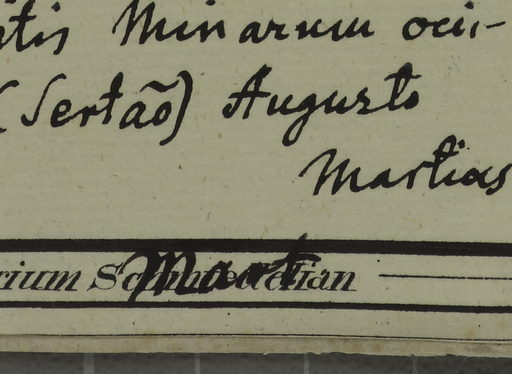 stis Minarum occi-
(Sertão) Augusto
Martius
rium Schmiedelian
Mart